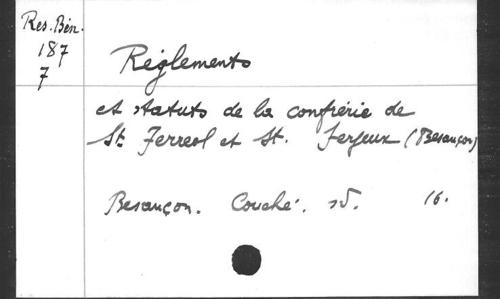 Res. Bén.
187
7
Réglements
et statuts de la confrérie de
St Ferreol et St. Ferjeux (Besançon)
Besançon. Couché. sd. 16.